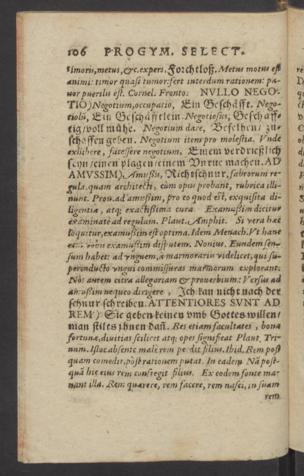 106 PROGYM. SELECT.
timoris, metus, &c. experi, Forchtloß, Metus motus est
animi: timor quasi tumor: fert interdum rationem: pa-
uor puerilis est. Cornel. Fronto. NVLLO NEGO-
TIO) Negotium, occupatio, Ein Geschäfft. Nego-
tiolũ, Ein Geschäfftlein. Negotiosus, Geschäff-
tig/voll mühe. Negotium dare, Befelhen/ zu-
schaffen geben. Negotium item pro molestia. Vnde
exhibere, facessere negotium, Einem verdrießlich
seyn/einen plagen/einem Vnrue machen. AD
AMVSSIM), Amussis, Richtschnur, fabrorum re-
gula, quam architecti, cùm opus probant, rubrica illi-
nunt. Prou. ad amussim, pro eo quod est, exquisita di-
ligentia, atq; exactissima cura. Examussim dicitur
examinatè ad regulam. Plaut. Amphit. Si vera hæc
loquitur, examussim est optima. Idem Menæch. Vt hanc
rem vobis examussim disputem. Nonius. Eundem sen-
sum habet: ad vnguem, à marmorarijs videlicet, qui su-
perinducto vngui commissuras marmorum explorant.
Nõ: autem citra allegoriam & prouerbium: Versus ad
amussim nequeo dirigere, Ich kan nicht nach der
schnur schreiben. ATTENTIORES SVNT AD
REM) Sie geben keinen vmb Gottes willen/
man stiles jhnen dañ. Res etiam facultates, bona
fortuna, diuitias scilicet atq; opes significat Plaut. Tri-
num. Istoc absente male rem perdit filius. Ibid. Rem post
quam comedit, põst rationem putat. In eadem Nã post-
quã hic eius rem confregit filius. Ex eodem fonte ma-
nant illa. Rem quærere, rem facere, rem nasci, in suam
rem